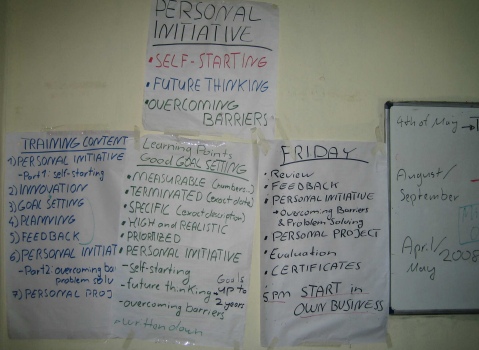 PERSONAL
INITIATIVE
• SELF-STARTING
• FUTURE THINKING
• OVERCOMING
BARRIERS
TRAINING CONTENT
1) PERSONAL INITIATIVE
- Part 1: self-starting
2) INNOVATION
3) GOAL SETTING
4) PLANNING
5) FEEDBACK
6) PERSONAL INITIAT
- Part 2: overcoming ba
problem solv
7) PERSONAL PROJ
Learning Points
Good GOAL SETTING
• MEASURABLE (numbers..)
• TERMINATED (exact date)
• SPECIFIC (exact description)
• HIGH and REALISTIC
• PRIORITIZED
• PERSONAL INITIATIVE
- self-starting
- future thinking
- overcoming barriers
- written down
Goals
up to
2 years
FRIDAY
• Review
• FEEDBACK
• PERSONAL INITIATIVE
→ overcoming Barriers
& Problem Solving
• PERSONAL PROJECT
• Evaluation
• CERTIFICATES
5 PM START in
OWN BUSINESS
4th of May →
August/
September
April/
May 2008